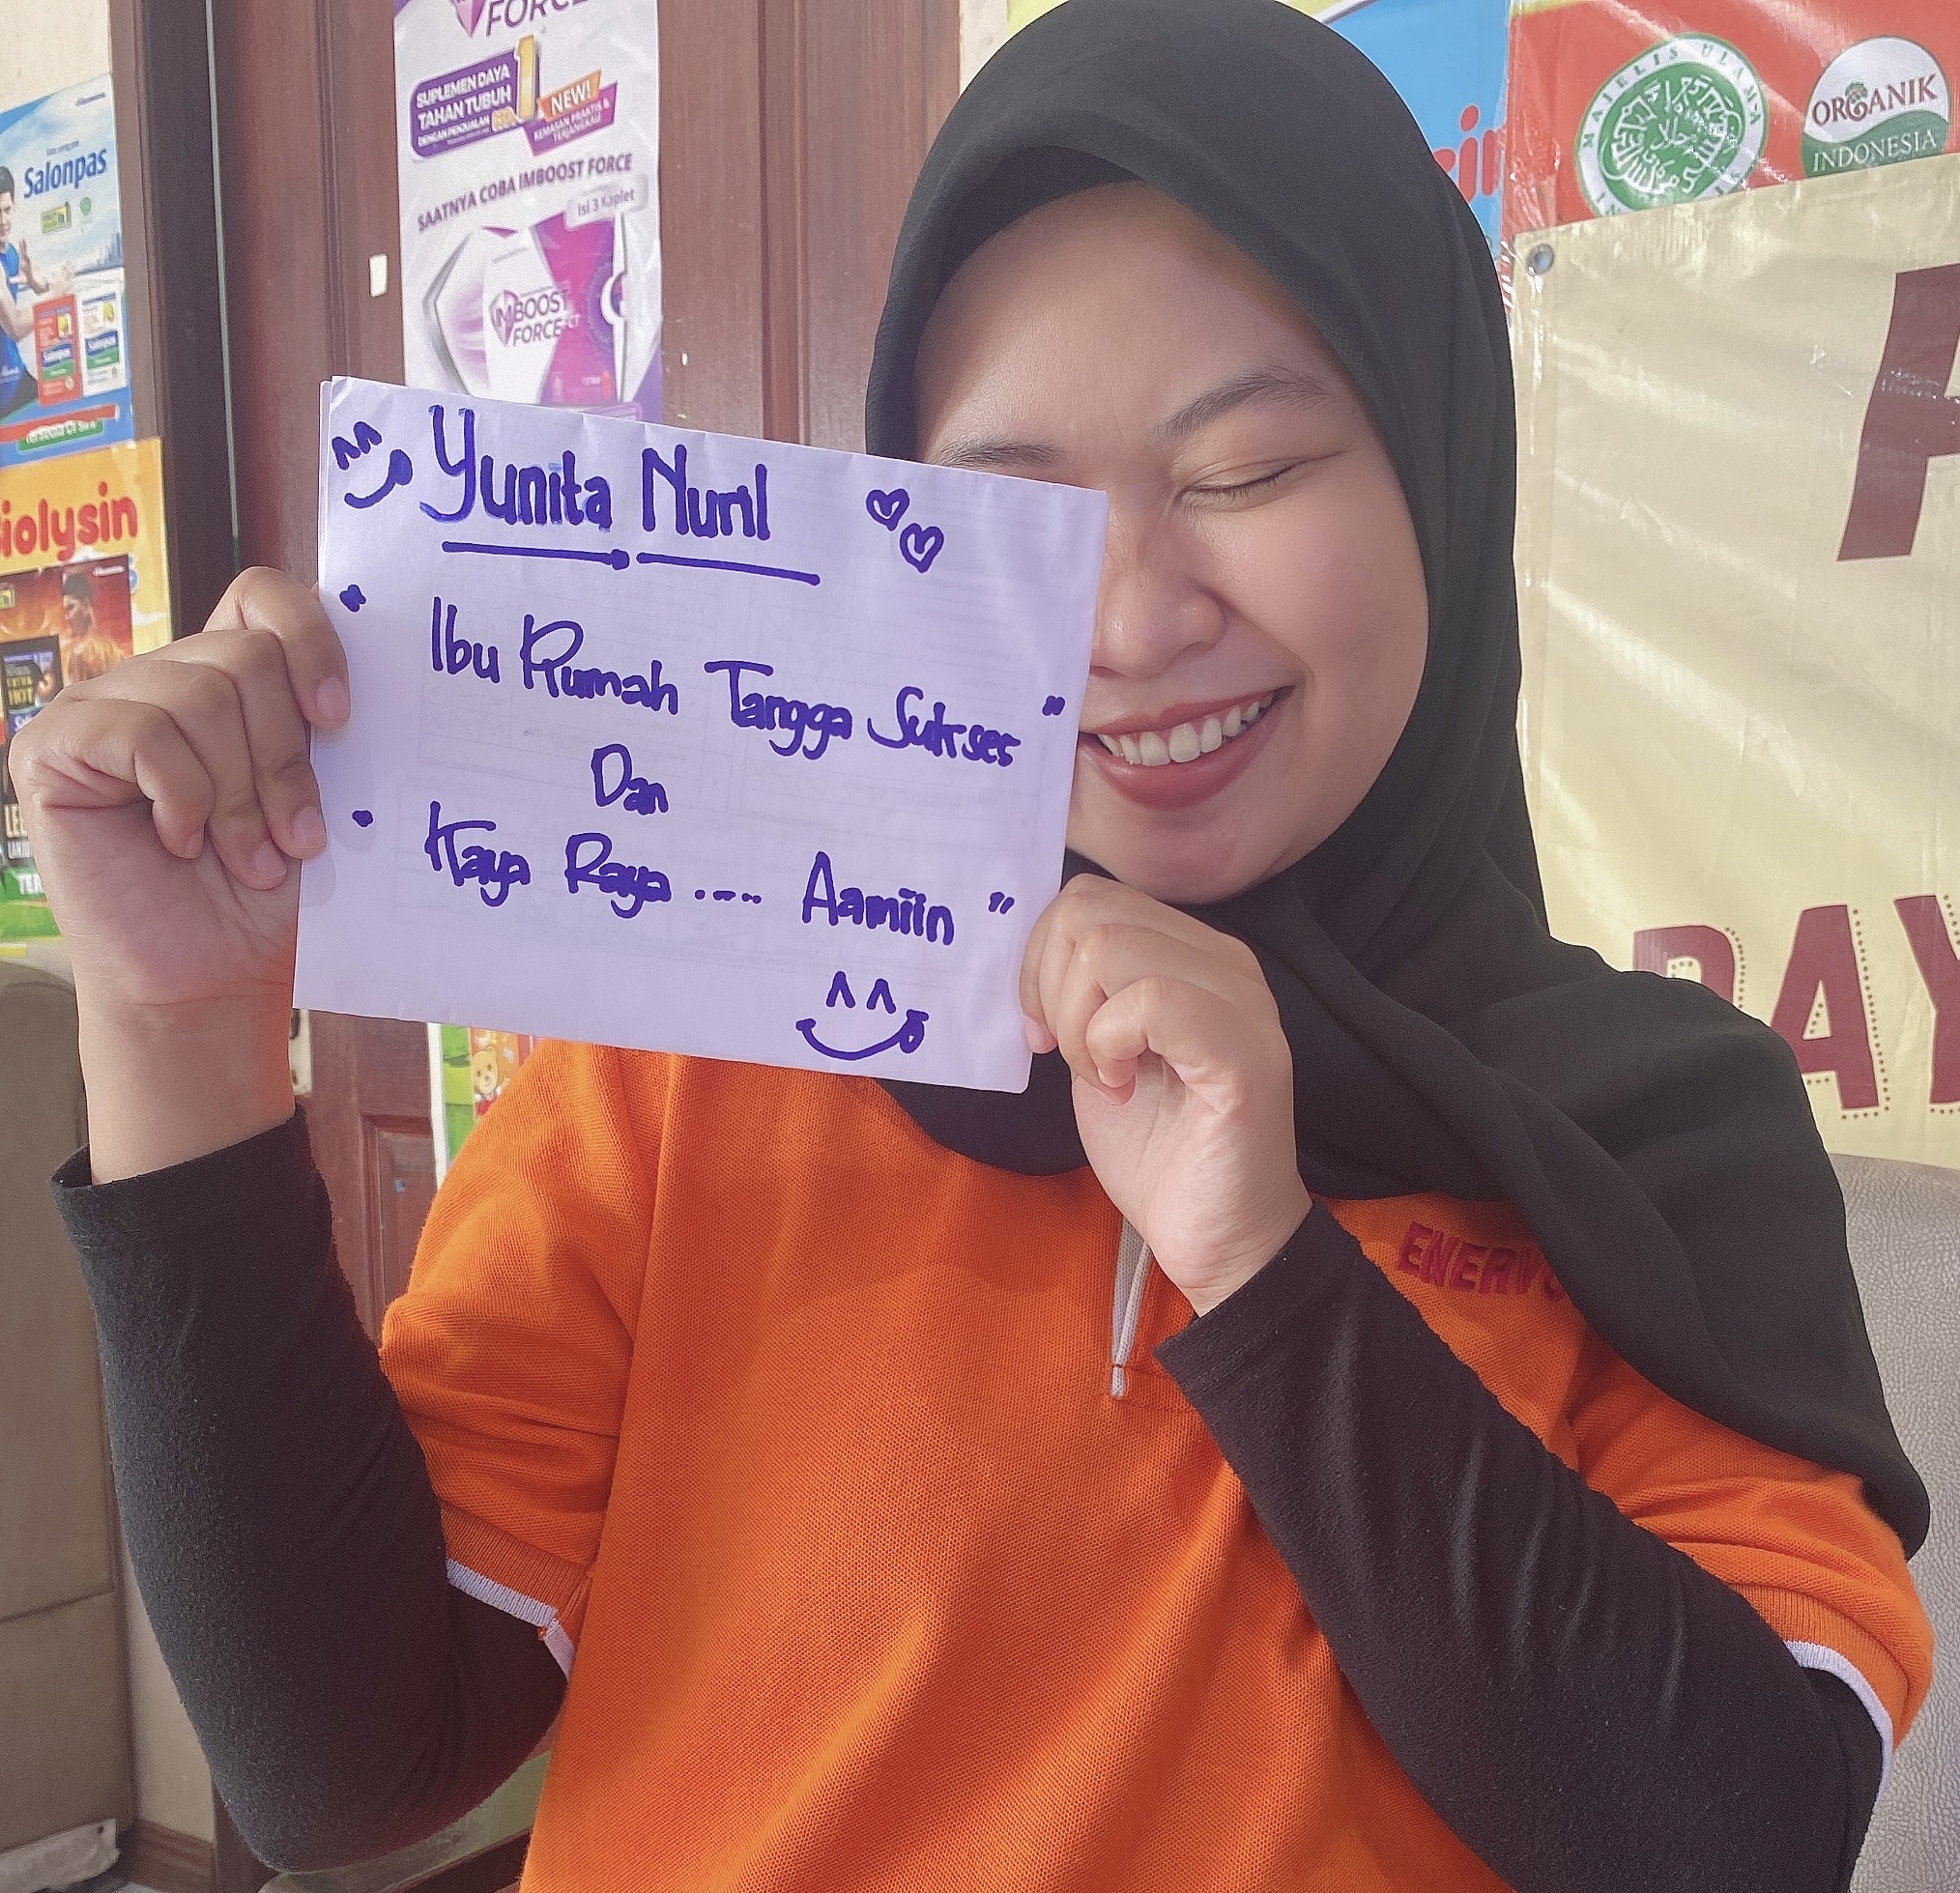 FORCE
SUPLEMEN DAYA
TAHAN TUBUH
1
NEW!
KEMASAN PRAKTIS &
TERJANGKAU
SAATNYA COBA IMBOOST FORCE
Isi 3 Kaplet
IMBOOST
FORCE
Salonpas
Salonpas
Salonpas
iolysin
MAJELIS ULAMA
ORGANIK
INDONESIA
Yunita Nuril
" Ibu Rumah Tangga Sukses "
Dan
" Kaya Raya .... Aamiin "
ENERV